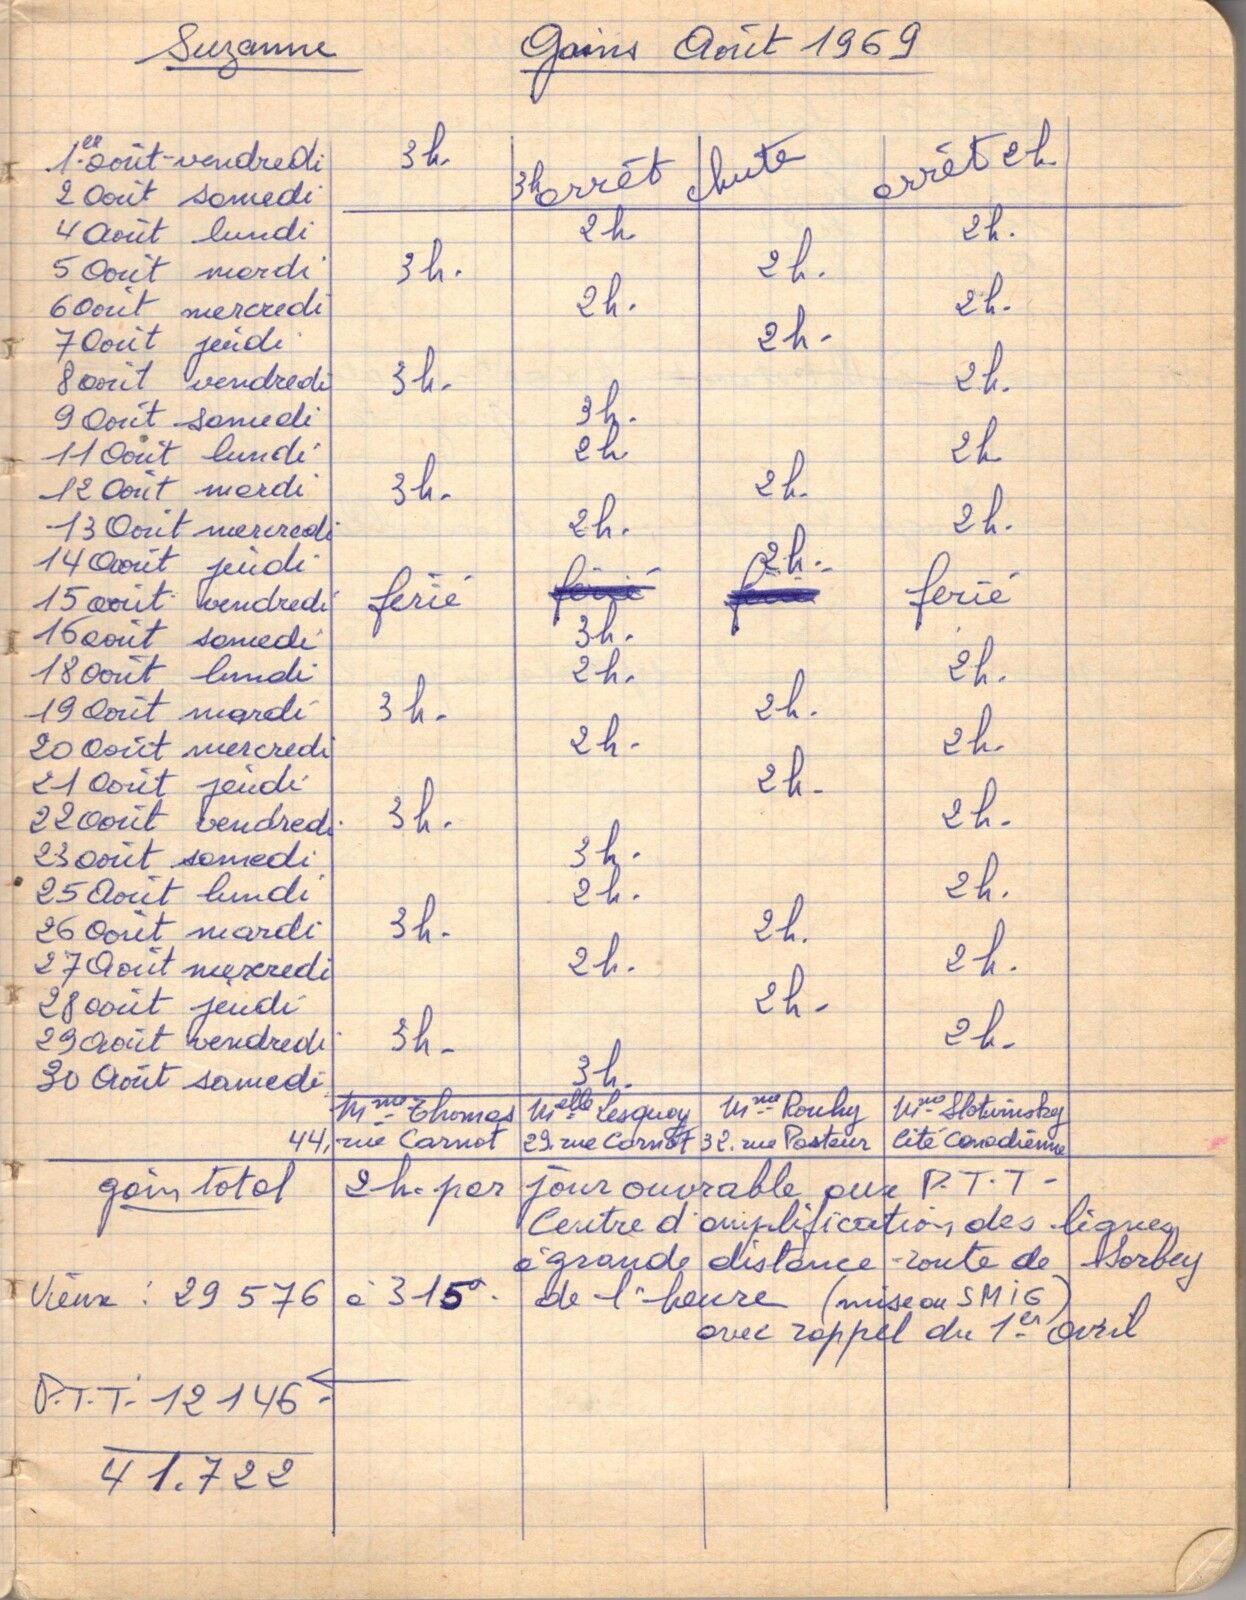 Suzanne Gains Août 1969
1er août vendredi 3h. 3h arrêt chute arrêt 2h.
2 Août samedi
4 Août lundi 2h 2h.
5 Août mardi 3h. 2h.
6 Août mercredi 2h. 2h.
7 Août jeudi 2h.
8 août vendredi 3h. 2h.
9 Août samedi 3h.
11 Août lundi 2h 2h
12 Août mardi 3h. 2h.
13 Août mercredi 2h. 2h.
14 Août jeudi 2h.
15 août vendredi ferié ferié ferié ferié
16 août samedi 3h.
18 Août lundi 2h. 2h.
19 Août mardi 3h. 2h.
20 Août mercredi 2h. 2h.
21 Août jeudi 2h.
22 Août vendredi 3h. 2h.
23 août samedi 3h.
25 Août lundi 2h. 2h.
26 Août mardi 3h. 2h.
27 Août mercredi 2h. 2h.
28 août jeudi 2h.
29 Août vendredi 3h. 2h.
30 Août samedi 3h.
Mme Thomas Melle Lesquoy Mme Rouhy Mme Slotwinsky
44, rue Carnot 29. rue Carnot 32. rue Pasteur Cité Canadienne
gain total 2h. par jour ouvrable aux P.T.T.
Centre d'amplification des lignes
à grande distance - route de Sorbey
Vieux : 29 576 à 315 de l'heure (mise au SMIG)
avec rappel du 1er avril
P.T.T. 12 146
41.722